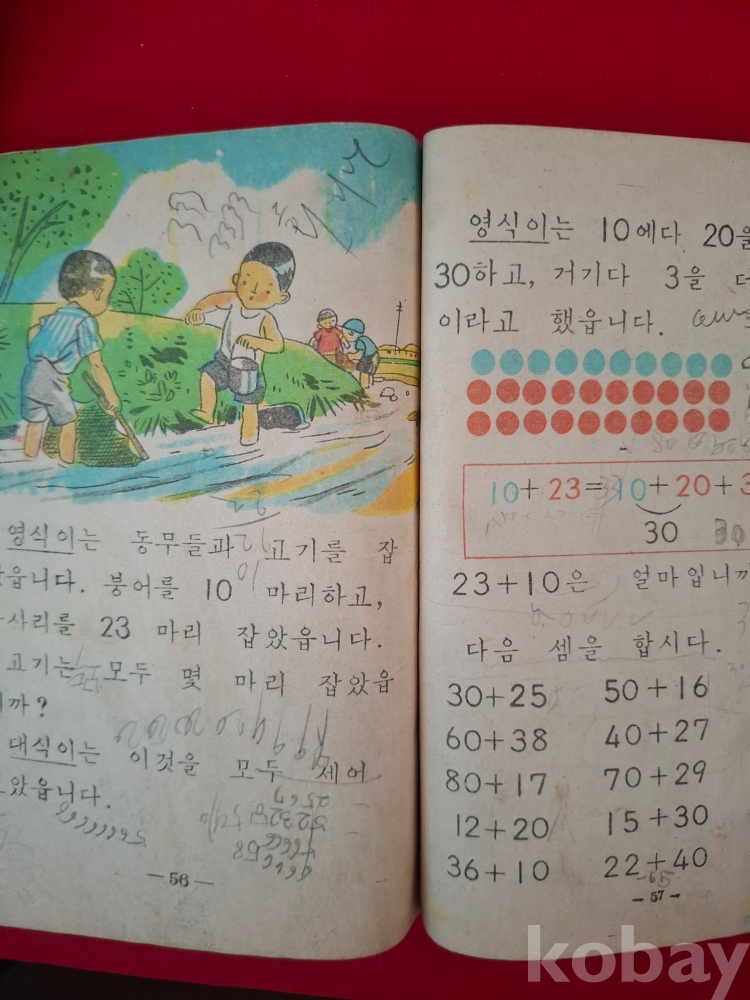 영식이는 동무들과 고기를 잡
았읍니다. 붕어를 10 마리하고,
사리를 23 마리 잡았읍니다.
고기는 모두 몇 마리 잡았읍
니까?
대식이는 이것을 모두 세어
보았읍니다.
— 56 —
영식이는 10에다 20을
30하고, 거기다 3을 더
이라고 했읍니다.
10 + 23 = 10 + 20 + 3
30
23+10은 얼마입니까
다음 셈을 합시다.
30+25 50+16
60+38 40+27
80+17 70+29
12+20 15+30
36+10 22+40
- 57 -
kobay